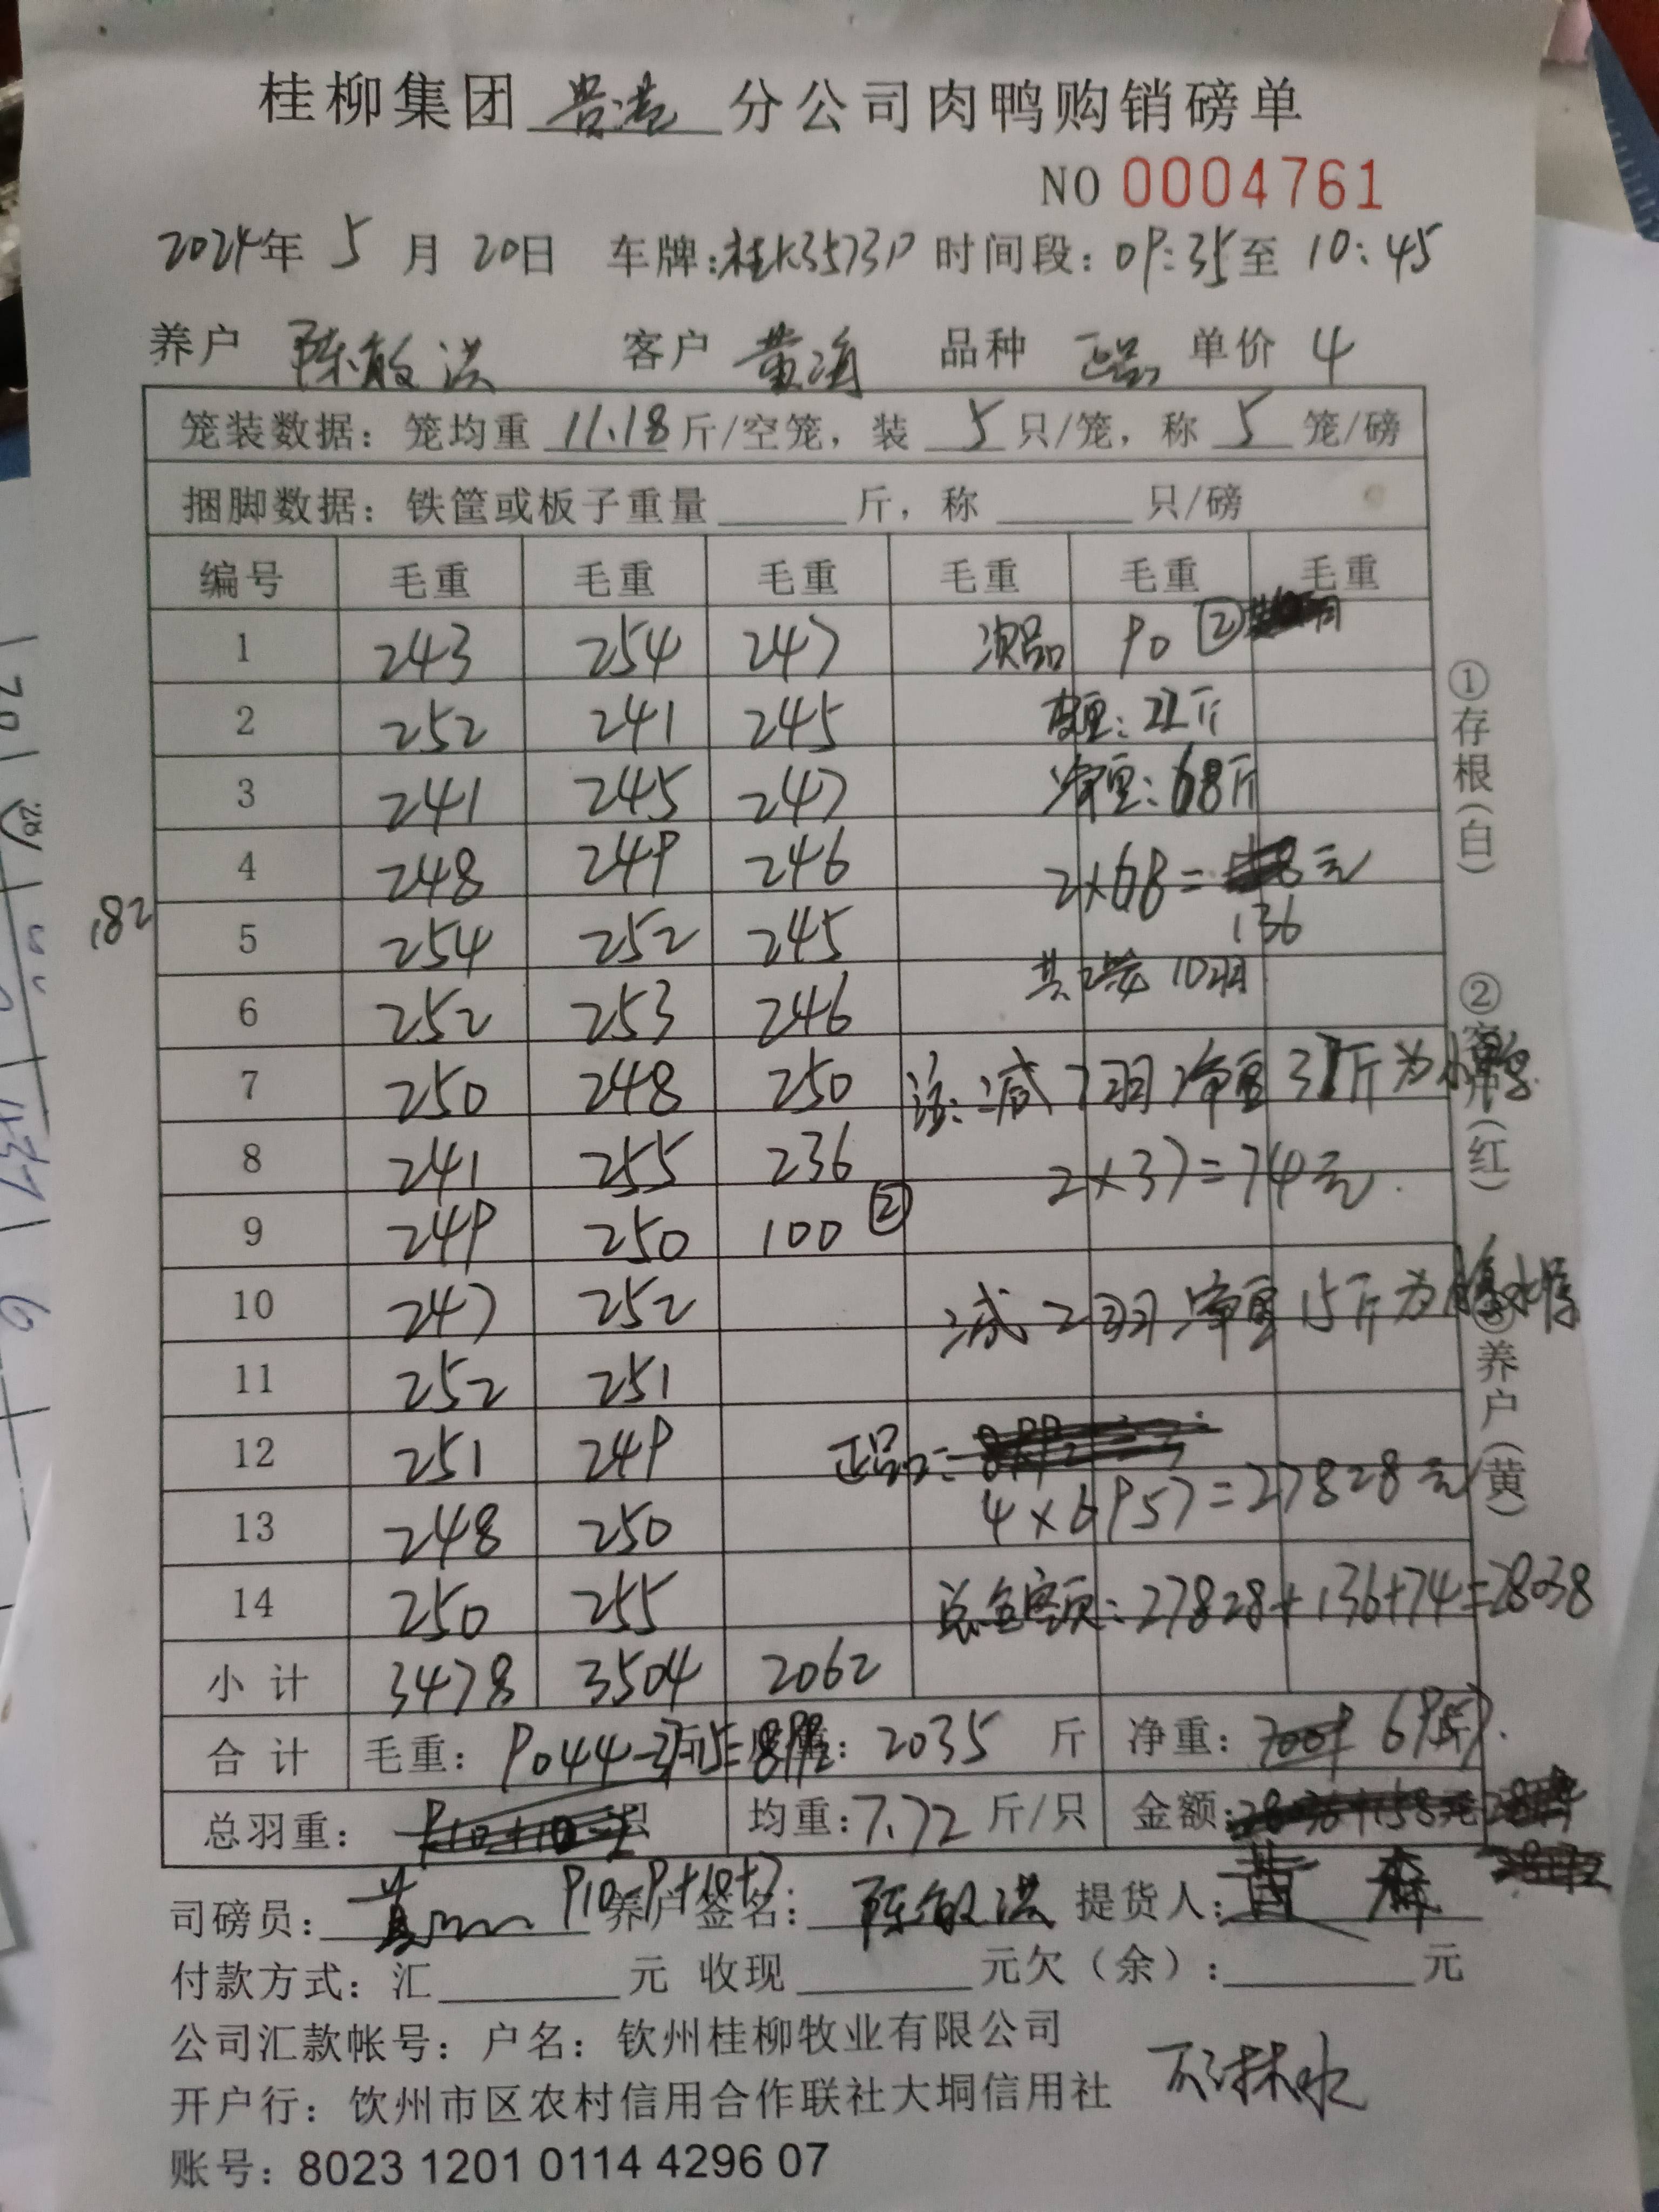 桂柳集团 贵港 分公司肉鸭购销磅单
NO 0004761
2024年 5 月 20日 车牌:桂K3573P 时间段: 09:35至 10:45
养户 陈敏洪 客户 黄海 品种 正品 单价 4
笼装数据: 笼均重 11.18 斤/空笼, 装 5 只/笼, 称 5 笼/磅
捆脚数据: 铁筐或板子重量 斤, 称 只/磅
编号 毛重 毛重 毛重 毛重 毛重 毛重
1 243 254 247 次品 90 ②
2 252 241 245 皮重: 22斤
3 241 245 247 净重: 68斤
4 248 249 246 2×68= 元
182
136
5 254 252 245
6 252 253 246 共2笼 10羽
7 250 248 250 注: 减 7羽 净重 37斤为小
8 241 255 236 2×37=74元.
9 249 250 100 ②
10 247 252 减 2羽 净重 15斤为
11 252 251
12 251 249 正品:
4×6957=27828元
13 248 250
14 250 255 总金额: 27828+136+74=28038
小计 3478 3504 2062
合计 毛重: 9044-37-15=8992 2035 斤 净重: 6957.
总羽重: 只 均重: 7.72 斤/只 金额:
910-9+10+7
司磅员: 黄 养户签名: 陈敏洪 提货人: 黄
付款方式: 汇 元 收现 元欠(余): 元
公司汇款帐号: 户名: 钦州桂柳牧业有限公司
不淋水
开户行: 钦州市区农村信用合作联社大垌信用社
账号: 8023 1201 0114 4296 07
①存根(白)
②客户(红)
③养户(黄)